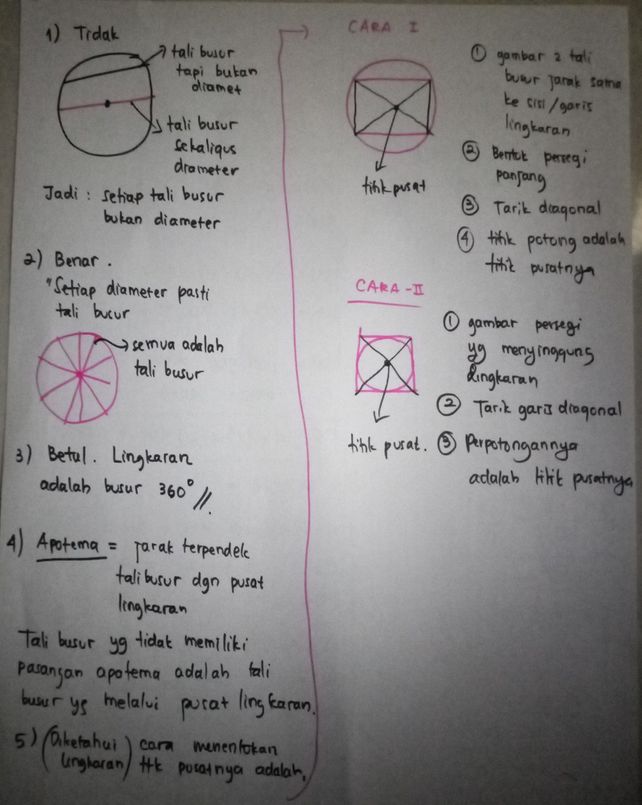 1) Tidak
tali busur
tapi bukan
diamet
tali busur
sekaligus
diameter
Jadi : setiap tali busur
bukan diameter
2) Benar .
"Setiap diameter pasti
tali busur
semua adalah
tali busur
3) Betul. Lingkaran
adalah busur 360° //
4) Apotema = jarak terpendek
tali busur dgn pusat
lingkaran
Tali busur yg tidak memiliki
pasangan apotema adalah tali
busur yg melalui pusat lingkaran.
5) (Diketahui lingkaran) cara menentukan
ttk pusatnya adalah,
CARA I
titik pusat
① gambar 2 tali
busur jarak sama
ke sisi/garis
lingkaran
② Bentuk persegi
panjang
③ Tarik diagonal
④ titik potong adalah
titik pusatnya
CARA-II
titik pusat.
① gambar persegi
yg menyinggung
lingkaran
② Tarik garis diagonal
③ Perpotongannya
adalah titik pusatnya